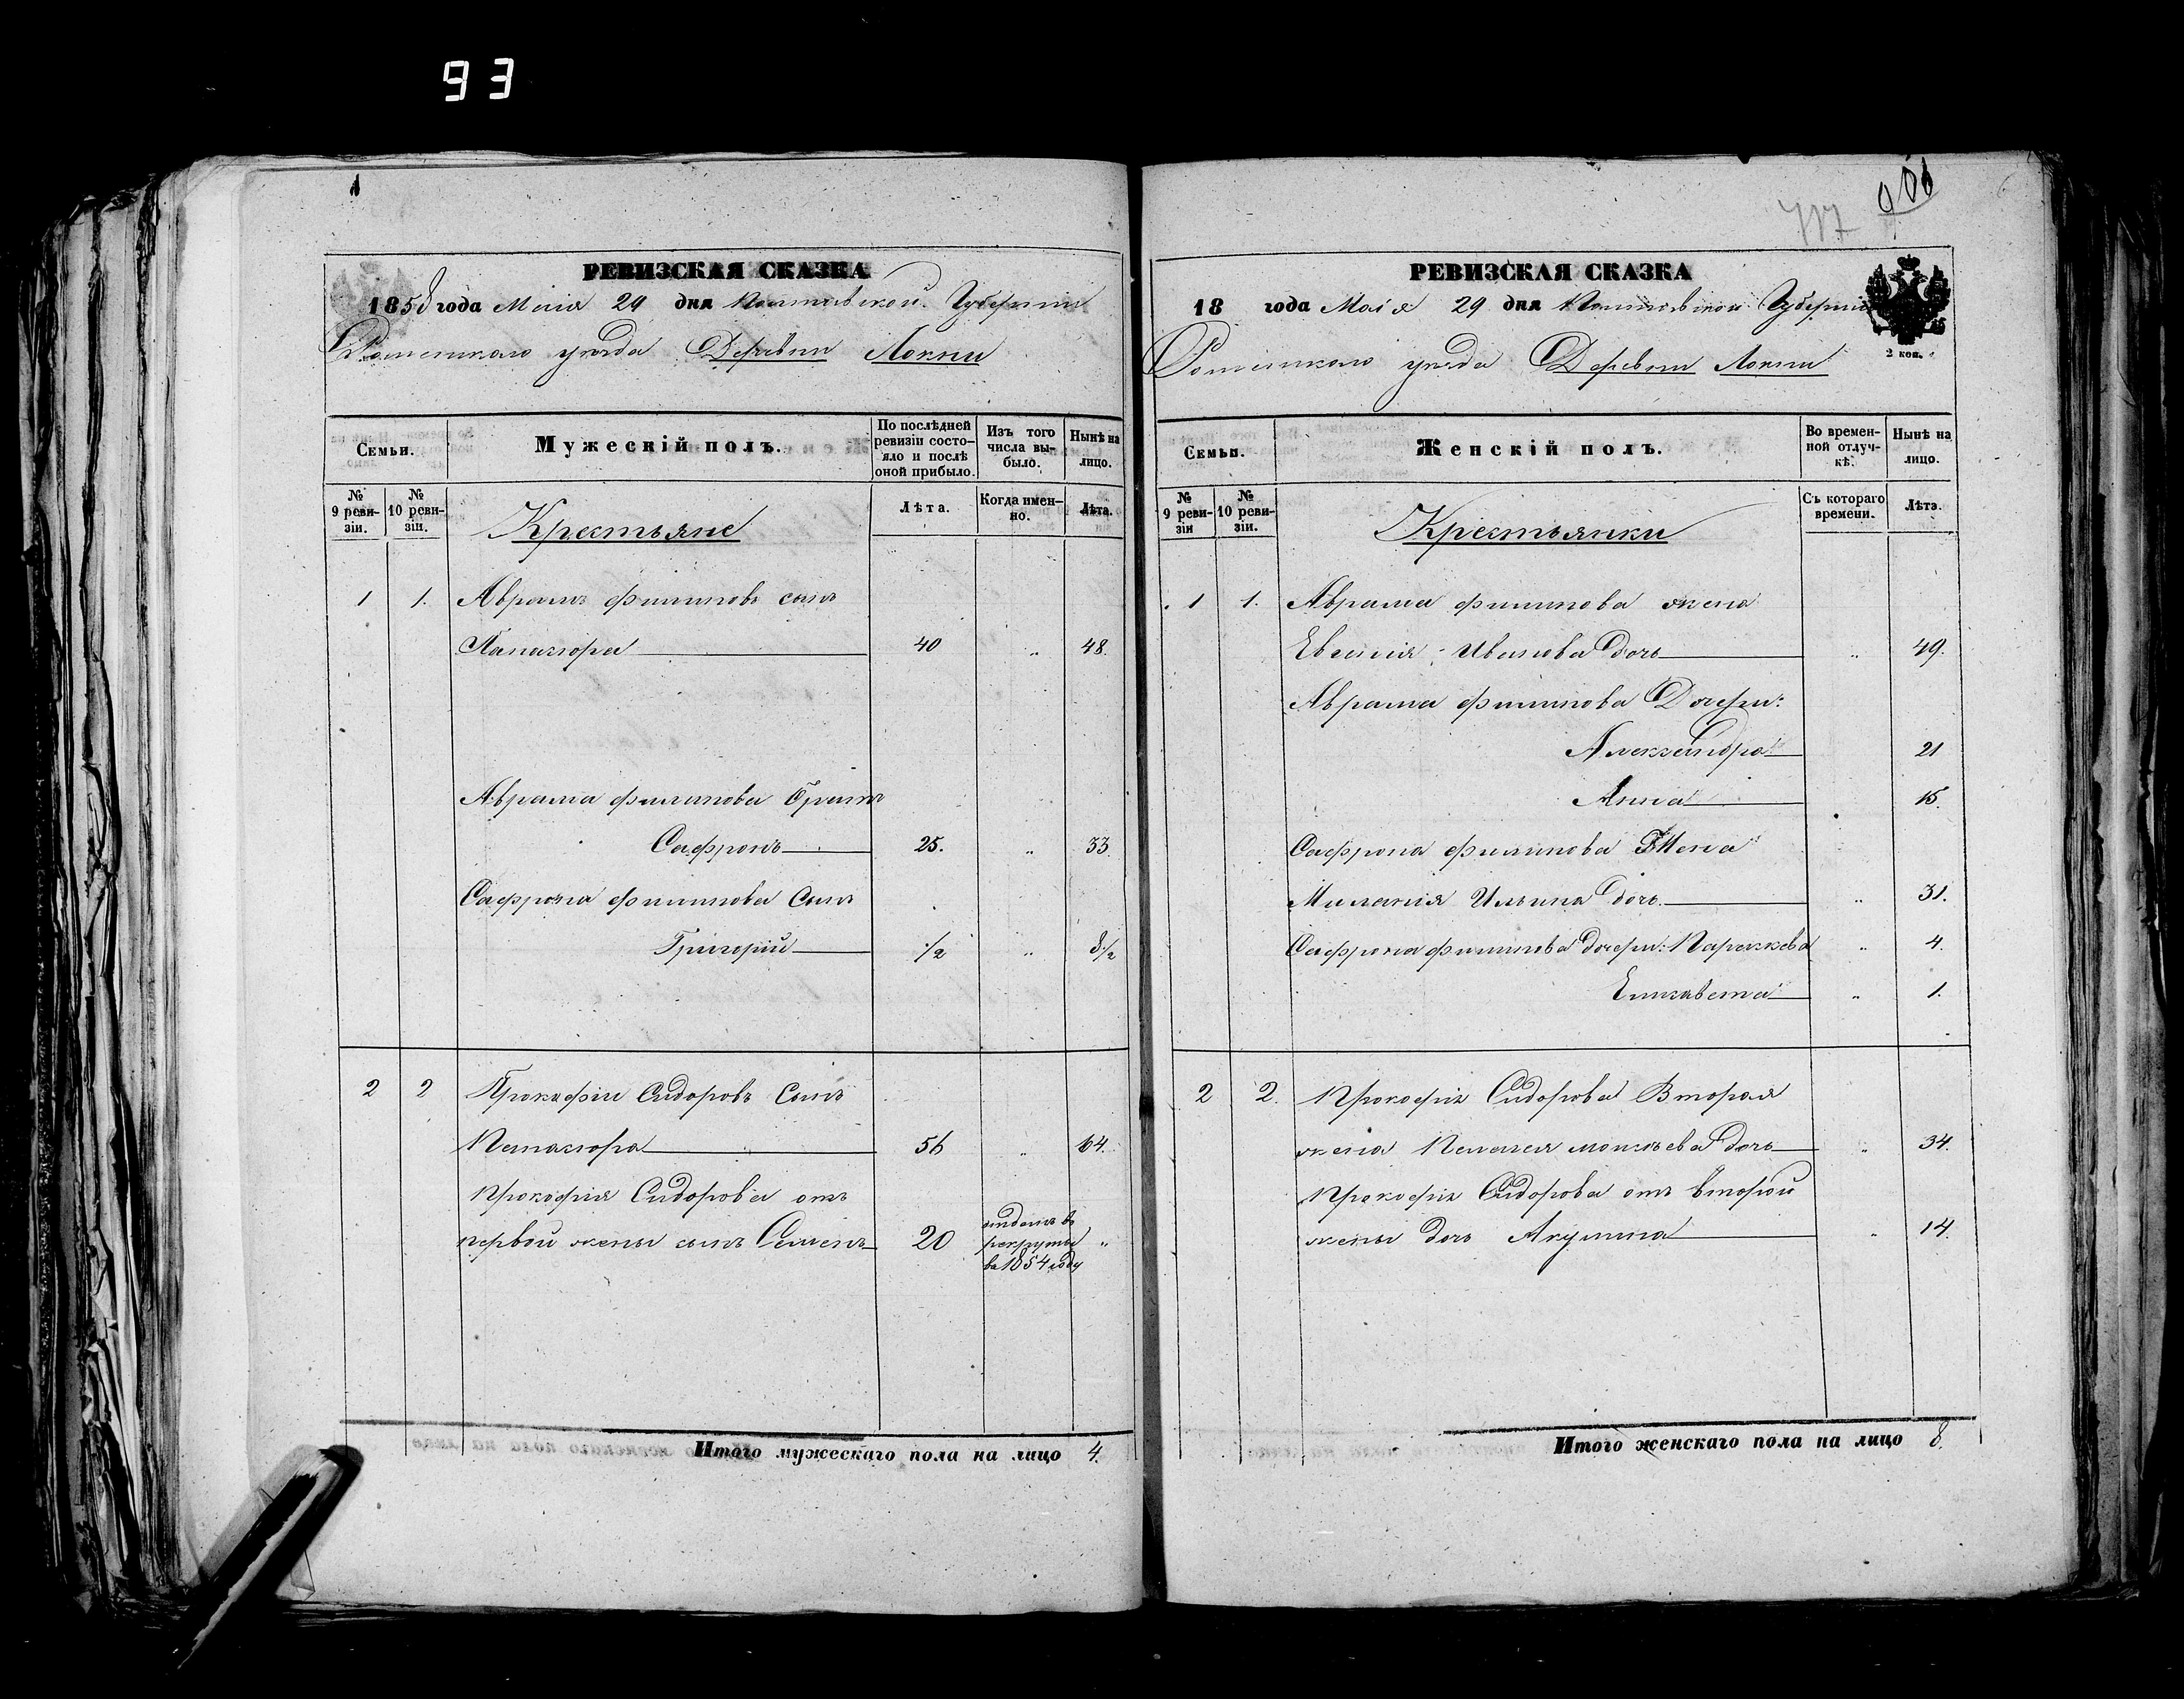 93
1
РЕВИЗСКАЯ СКАЗКА
1858 года Маія 29 дня Полтавской Губерніи
Роменскаго уезда Деревни Локни
Семьи.
Мужескій полъ.
По послѣдней ревизіи состо-
яло и послѣ
оной прибыло.
Изъ того
числа вы-
было.
Нынѣ на
лицо.
№
9 реви-
зіи.
№
10 реви-
зіи.
Крестьяне
Лѣта.
Когда имен-
но.
Лѣта.
1 1. Аврамъ филиповъ сынъ
40 „ 48.
Аврама филипова братъ
Сафронъ 25. „ 33
Сафрона филипова Сынъ
Григорій 1/2 „ 8 1/2
2 2 Прокофій Сидоровъ Сынъ
56 „ 64.
Прокофія Сидорова отъ
первой жены сынъ Семенъ 20 отданъ въ
рекруты „
въ 1854 году
Итого мужескаго пола на лицо 4.
717 906
РЕВИЗСКАЯ СКАЗКА
18 года Маія 29 дня Полтавской Губерніи
Роменскаго уезда Деревни Локни
2 коп.
Семьи.
Женскій полъ.
Во времен-
ной отлуч-
кѣ.
Нынѣ на
лицо.
№
9 реви-
зіи
№
10 реви-
зіи.
Крестьянки
Съ котораго
времени.
Лѣта.
1 1. Аврама филипова жена
Евгенія Иванова дочь „ 49.
Аврама филипова Дочери:
Александра 21
Анна 15.
Сафрона филипова Жена
Миланія Ильина дочь „ 31.
Сафрона филипова дочери: Параскева „ 4.
Елизавета „ 1.
2 2. Прокофія Сидорова Вторая
жена Пелагея дочь „ 34.
Прокофія Сидорова отъ второй
жены дочь Акулина „ 14.
Итого женскаго пола на лицо 8.